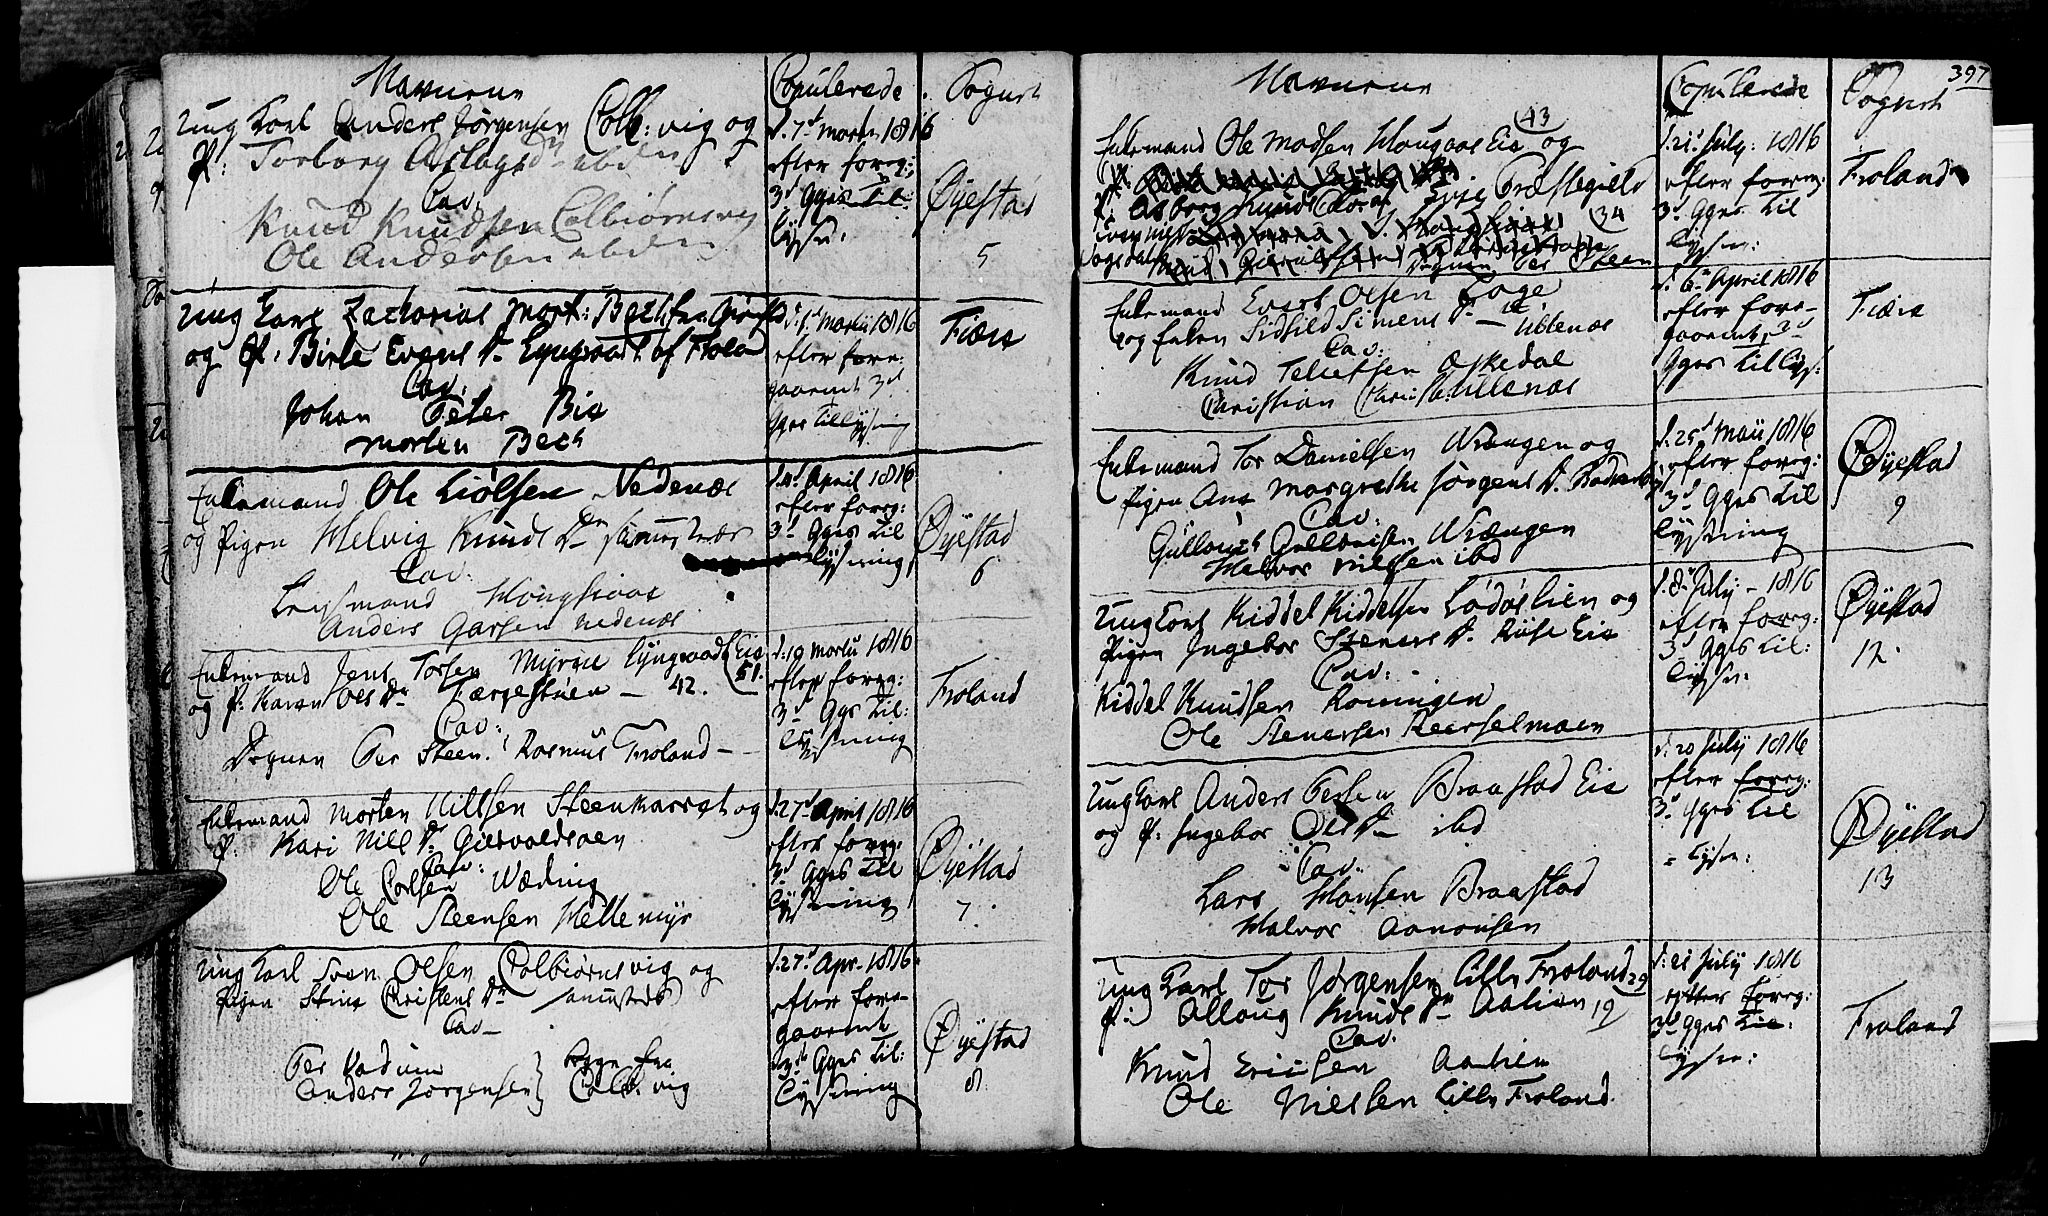 Navnene
Copulerede
Sognet
Ung Karl Anders Jørgensen Colb: vig og
P: Torborg Aslags Dr ibiden
Cav:
Knud Knudsen Colbiørnsvig
Ole Andersen ibiden
d. 7d Martii 1816
efter foreg:
3d Gges Til
lysn:
Øyestad
5
Ung Karl Zacharias Mort: Bech fra
og P: Birte Evens Dr Lyngsaat af Froland
Cav:
Johan Peter Bie
Morten Bech
d. 1d Martii 1816
efter fore-
gaaende 3d
Gges Tillysning
Fiære
Enkemand Ole Liølsen Nedenæs
og Pigen Helvig Knuds Dr
Cav:
Lensmand Hougsraae
Anders Garsen Nedenæs
d. 4d April 1816
efter foreg:
3d Gges Til
lysning
Øyestad
6
Enkemand Jens Torsen Myren Lyngraads Eie 51.
og P: Karen Oles Dr Færgestuen - 42.
Cav:
Degnen Per Steen. Rasmus Froland -
d: 19 Martii 1816
efter foreg:
3d Ggs Til:
lysning
Froland
Enkemand Morten Nielsen Steenkarret og
P. Kari Niels Dr Giervoldsøen
Cav:
Ole Carlsen Wæding
Ole Steensen Hellemyr
d. 27d April 1816
efter foreg:
3d Gges Til
lysning
Øyestad
7.
Ung Karl Sven Olsen Colbiørnsvig og
Pigen Stine Christens Dr
Cav -
Per Vadum
Anders Jørgensen } Begge fra Colb. vig
d. 27d Apr. 1816
efter fore-
gaaende
3de Gges Til:
lysning
Øyestad
8.
Navnene
Copulerede
Sognet
397
43
Enkemand Ole Madsen Hougaas Eie og
P. Asborg Knuds Evje Præstegield
34
Degnen Per Steen
d. 21d July. 1816
efter foreg:
3d Gges Til
lysn:
Froland
Enkemand Evert Olsen
og Enken Sidsild Simens Dr - Uldenæs
Cav:
Knud Tellefsen Askedal
Christian Christ: Uldenæs
d. 6te April 1816
efter fore-
gaaende 3d
Gges Til lys:
Fiære
Enkemand Tor Danielsen Wrængen og
Pigen Ane Margrethe Jørgens Dr
Cav:
Gullouf Gullovsen Wrængen
Halvor Nielsen ibd
d. 25d Maii 1816
efter foreg:
3d Gges Til
lysning
Øyestad
9
Ung Karl Kiddel Kiddelsen Lødølien og
Pigen Ingebor Steners Dr Riise Eie
Cav:
Kiddel Knudsen Roningen
Ole Stenersen
d. 8d July - 1816
efter foreg:
3d Gges Til:
lysn:
Øyestad
12.
Ung Karl Anders Persen Braastad Eie
og P: Ingebor Ols Dr ibd
Cav.
Lars Hansen Braastad
Halvor Aanonsen
d. 20 July 1816
efter foreg:
3d Gges Til
lysn:
Øyestad
13
Ung Karl Tor Jørgensen Lille Froland 29
P: Alloug Knuds Dr Aalien 19
Cav.
Knud Ericksen Aalien
Ole Nielsen Lille Froland.
d: 21 July 1816
efter foreg:
3d Gges Til:
lysn:
Froland